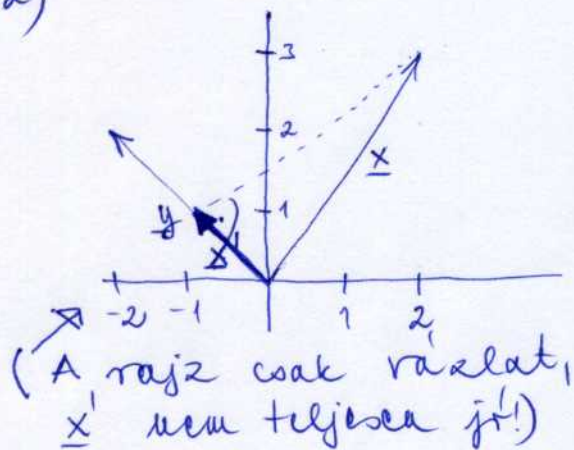 a)
3
2
x
1
y
x'
-2 -1 1 2
( A rajz csak vázlat,
x' nem teljesen jó!)